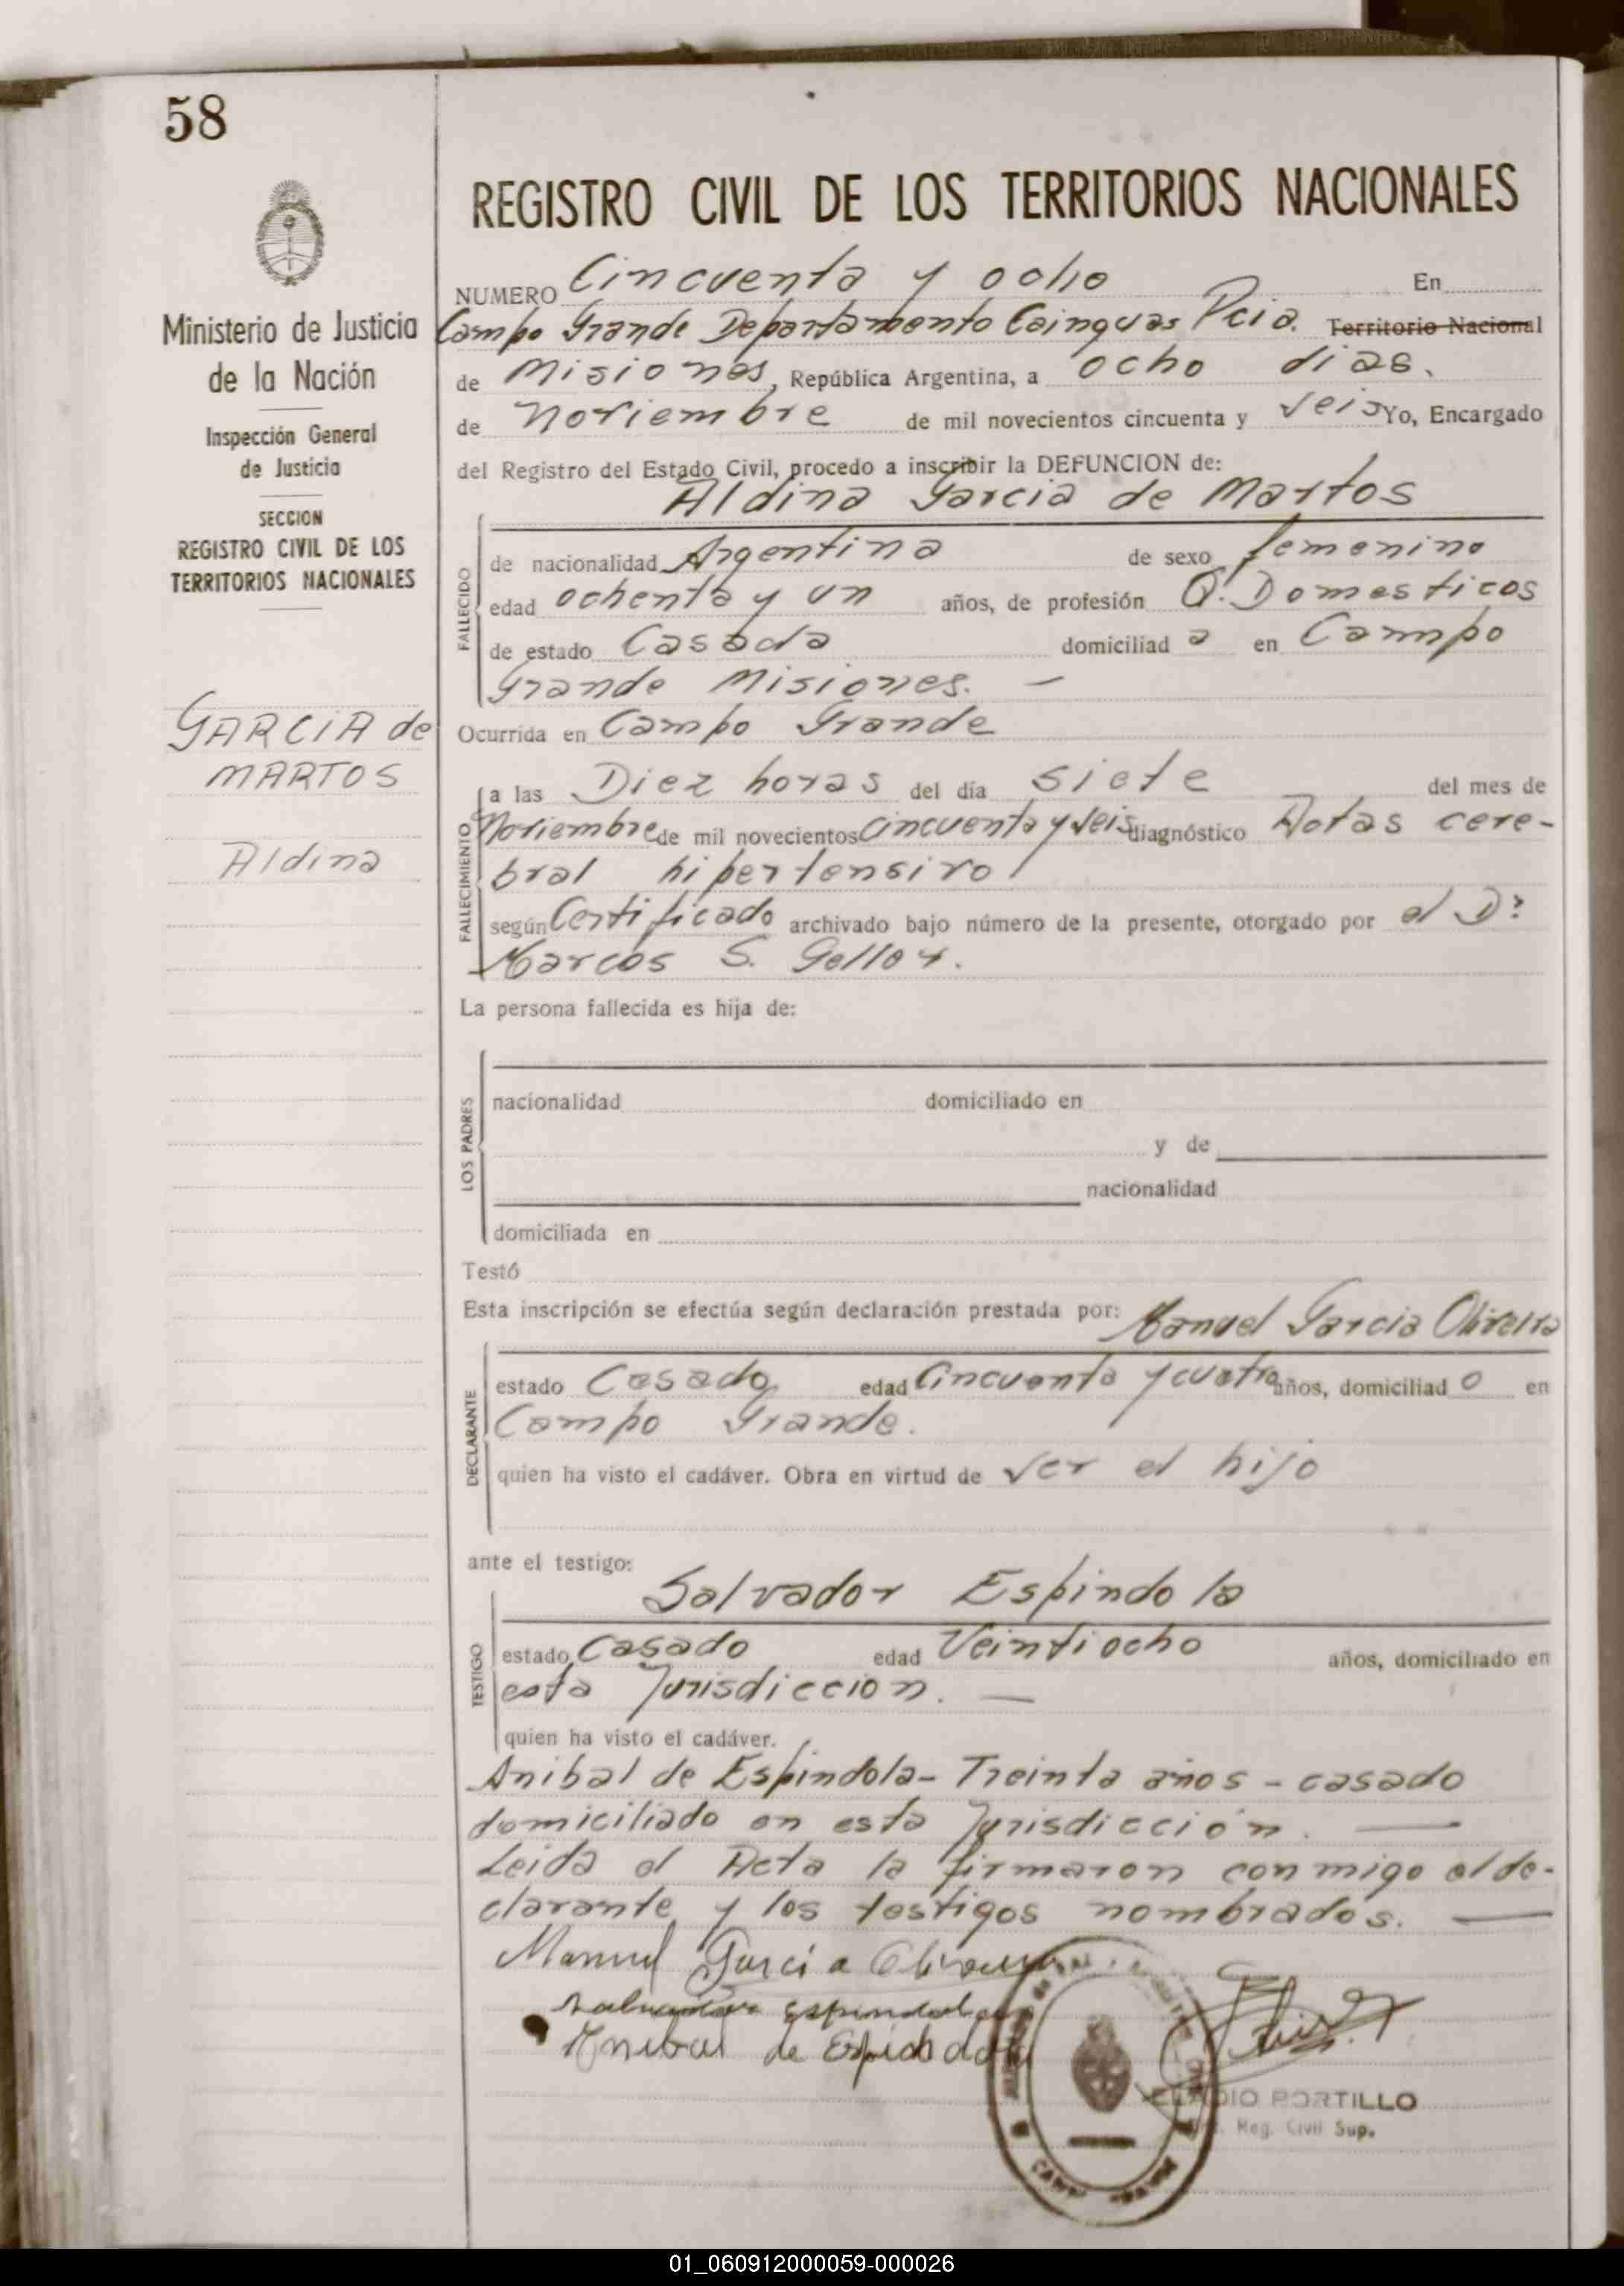 58
REGISTRO CIVIL DE LOS TERRITORIOS NACIONALES
Ministerio de Justicia
de la Nación
Inspección General
de Justicia
SECCION
REGISTRO CIVIL DE LOS
TERRITORIOS NACIONALES
GARCIA de
MARTOS
Aldina
NUMERO Cincuenta y ocho En
Campo Grande Departamento Cainguas Pcia. Territorio Nacional
de Misiones, República Argentina, a ocho dias.
de Noviembre de mil novecientos cincuenta y seis Yo, Encargado
del Registro del Estado Civil, procedo a inscribir la DEFUNCION de:
Aldina Garcia de Martos
FALLECIDO
de nacionalidad Argentina de sexo femenino
edad ochenta y un años, de profesión Q. Domesticos
de estado Casada domiciliad a en Campo
Grande Misiones. —
Ocurrida en Campo Grande
FALLECIMIENTO
a las Diez horas del día siete del mes de
Noviembre de mil novecientos cincuenta y seis diagnóstico cere-
bral hipertensivo
según Certificado archivado bajo número de la presente, otorgado por el Dr
Marcos S.
La persona fallecida es hija de:
LOS PADRES
nacionalidad domiciliado en
y de
nacionalidad
domiciliada en
Testó
Esta inscripción se efectúa según declaración prestada por: Manuel Garcia Oliveira
DECLARANTE
estado Casado edad Cincuenta y cuatro años, domiciliad o en
Campo Grande.
quien ha visto el cadáver. Obra en virtud de ser el hijo
ante el testigo:
Salvador Espindola
TESTIGO
estado Casado edad Veintiocho años, domiciliado en
esta Jurisdiccion. —
quien ha visto el cadáver.
Anibal de Espindola - Treinta años - casado
domiciliado en esta Jurisdicción. —
Leida el Acta la firmaron conmigo el de-
clarante y los testigos nombrados. —
Manuel Garcia
espindola
Anibal de
PORTILLO
Reg. Civil Sup.
01_060912000059-000026